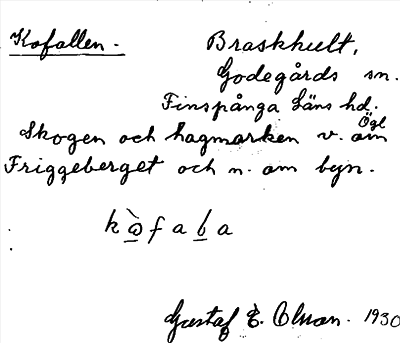 Kofallen.
Braskhult,
Godegårds sn.
Finspånga läns hd.
Ögl
Skogen och hagmarken v. om
Friggeberget och n. om byn.
Gustaf E. Olson. 1930